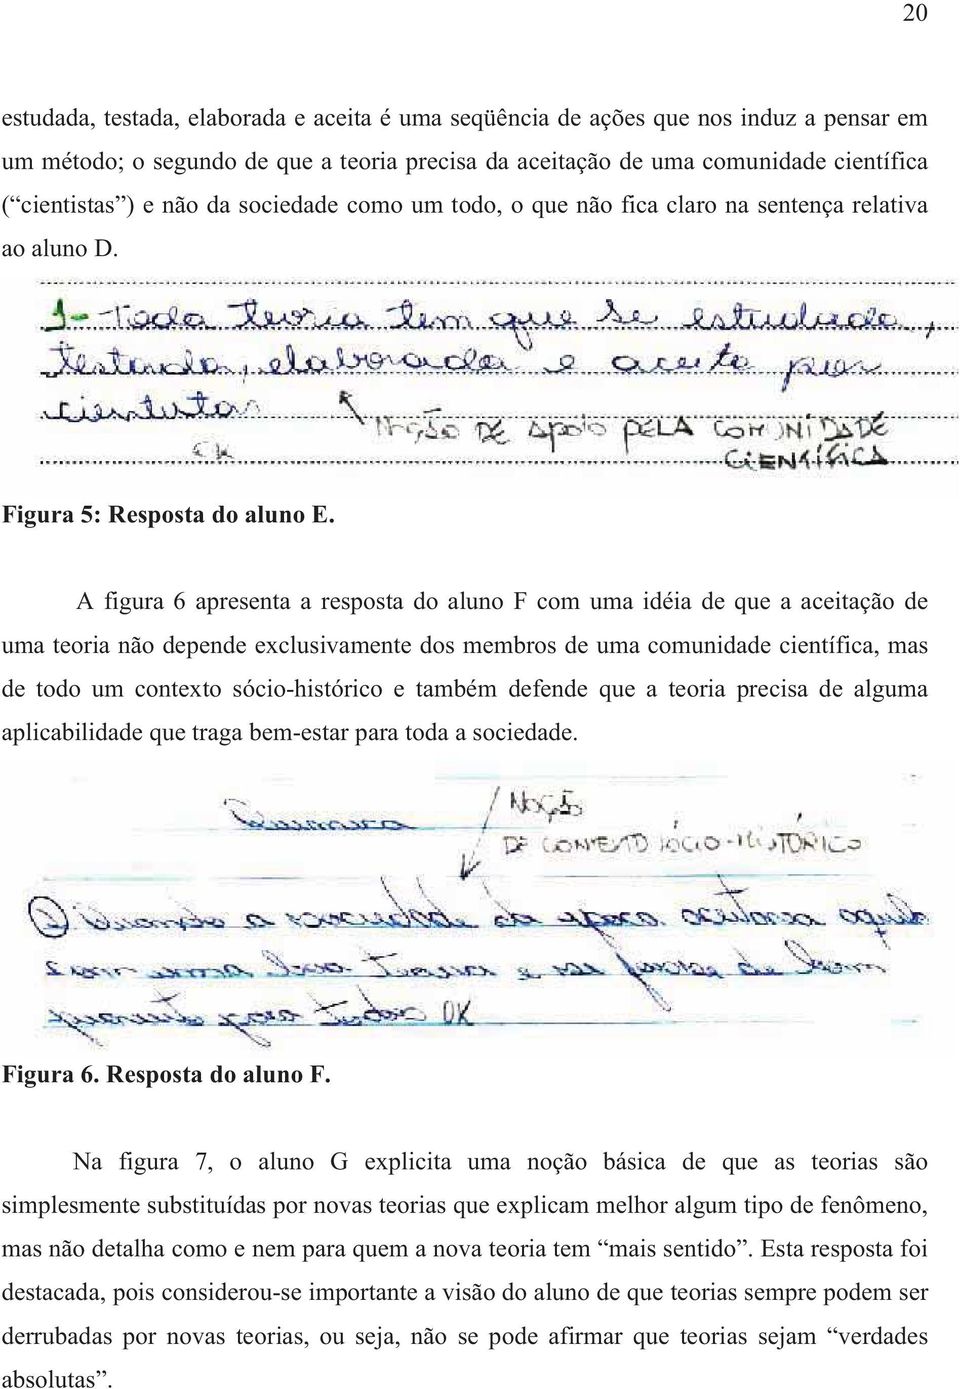 20
estudada, testada, elaborada e aceita é uma seqüência de ações que nos induz a pensar em
um método; o segundo de que a teoria precisa da aceitação de uma comunidade científica
(“cientistas”) e não da sociedade como um todo, o que não fica claro na sentença relativa
ao aluno D.
1- Toda teoria tem que se estudada,
testada, elaborada e aceita por
cientistas
NOÇÃO DE APOIO PELA COMUNIDADE
OK CIENTÍFICA
Figura 5: Resposta do aluno E.
A figura 6 apresenta a resposta do aluno F com uma idéia de que a aceitação de
uma teoria não depende exclusivamente dos membros de uma comunidade científica, mas
de todo um contexto sócio-histórico e também defende que a teoria precisa de alguma
aplicabilidade que traga bem-estar para toda a sociedade.
NOÇÃO
Química
DE CONTEXTO SÓCIO-HISTÓRICO
1) Quando a sociedade da época aceitava aquilo
como uma boa teoria e se fosse de bom
proveito para todos OK
Figura 6. Resposta do aluno F.
Na figura 7, o aluno G explicita uma noção básica de que as teorias são
simplesmente substituídas por novas teorias que explicam melhor algum tipo de fenômeno,
mas não detalha como e nem para quem a nova teoria tem “mais sentido”. Esta resposta foi
destacada, pois considerou-se importante a visão do aluno de que teorias sempre podem ser
derrubadas por novas teorias, ou seja, não se pode afirmar que teorias sejam “verdades
absolutas”.